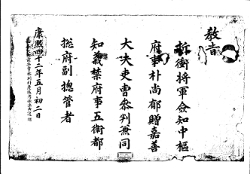 敎旨
折衝將軍僉知中樞
府事朴尚都贈嘉善
大夫吏曹叅判兼同
知義禁府事五衛都
摠府副摠管者
康熙四十二年五月初二日